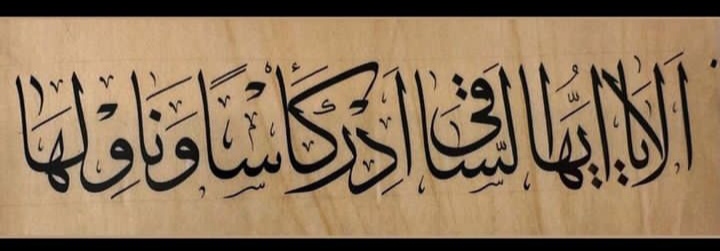 اَلَا یَا اَیُّهَا السَّاقِی اَدِرْ كَأْسًا وَنَاوِلْهَا